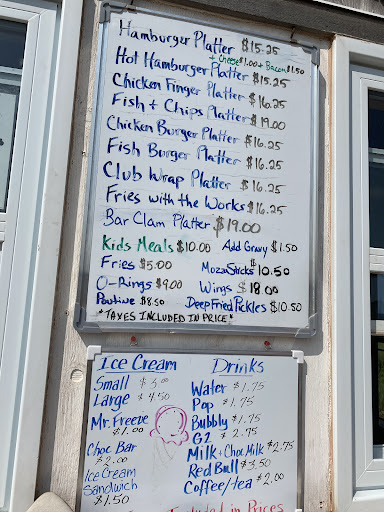 Hamburger Platter $15.25
+ Cheese $1.00 + Bacon $1.50
Hot Hamburger Platter $15.25
Chicken Finger Platter $16.25
Fish + Chips Platter $19.00
Chicken Burger Platter $16.25
Fish Burger Platter $16.25
Club Wrap Platter $16.25
Fries with the Works $16.25
Bar Clam Platter $19.00
Kids Meals $10.00 Add Gravy $1.50
Fries $5.00 Mozza Sticks $10.50
O-Rings $9.00 Wings $18.00
Poutine $8.50 Deep Fried Pickles $10.50
*TAXES INCLUDED IN PRICE*
Ice Cream
Small $3.00
Large $4.50
Mr. Freeze
$1.00
Choc Bar
$2.00
Ice Cream
Sandwich
$1.50
Drinks
Water $1.75
Pop $1.75
Bubbly $1.75
G2 $2.75
Milk + Choc Milk $2.75
Red Bull $3.50
Coffee/tea $2.00
Included in Prices